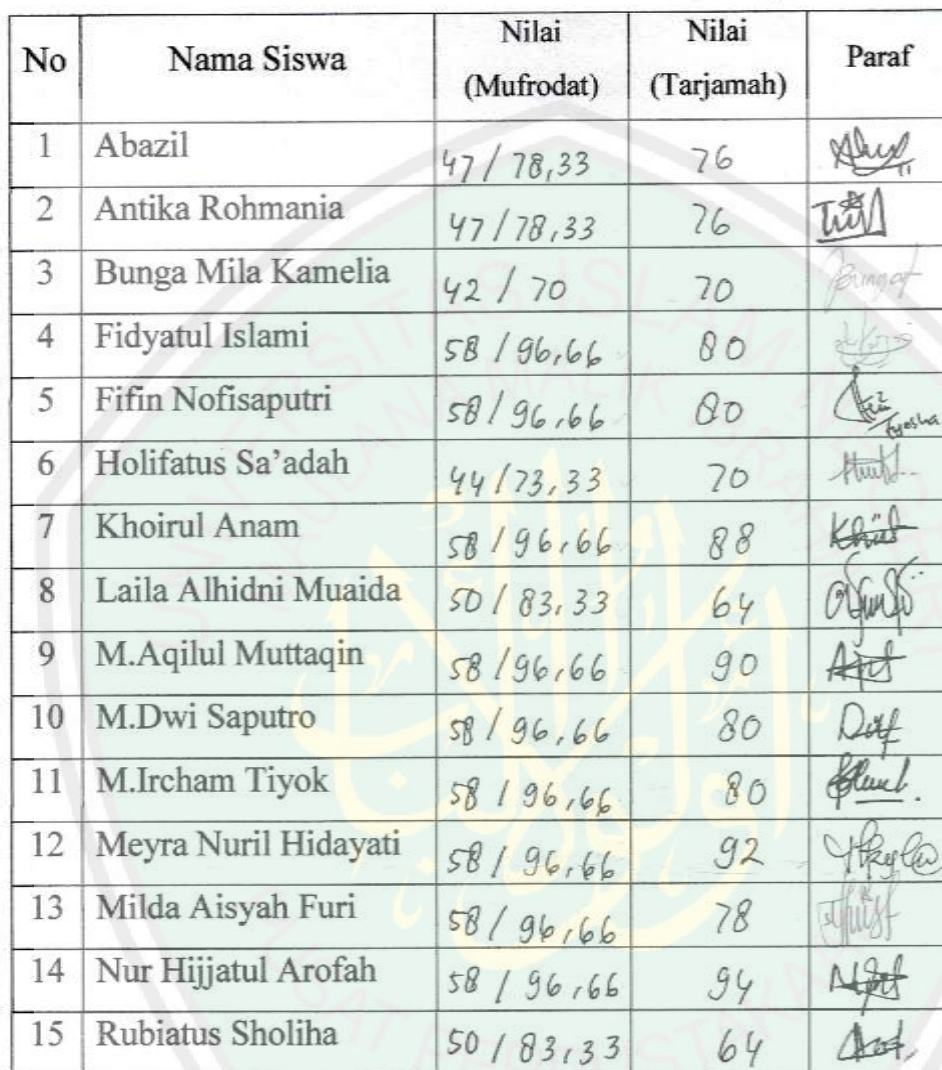 No Nama Siswa Nilai (Mufrodat) Nilai (Tarjamah) Paraf
1 Abazil 47 / 78,33 76
2 Antika Rohmania 47 / 78,33 76
3 Bunga Mila Kamelia 42 / 70 70
4 Fidyatul Islami 58 / 96,66 80
5 Fifin Nofisaputri 58 / 96,66 80
6 Holifatus Sa’adah 44 / 73,33 70
7 Khoirul Anam 58 / 96,66 88
8 Laila Alhidni Muaida 50 / 83,33 64
9 M.Aqilul Muttaqin 58 / 96,66 90
10 M.Dwi Saputro 58 / 96,66 80
11 M.Ircham Tiyok 58 / 96,66 80
12 Meyra Nuril Hidayati 58 / 96,66 92
13 Milda Aisyah Furi 58 / 96,66 78
14 Nur Hijjatul Arofah 58 / 96,66 94
15 Rubiatus Sholiha 50 / 83,33 64